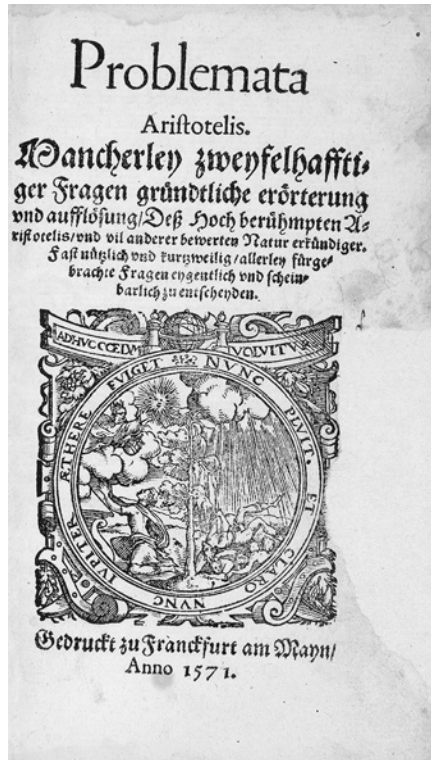 Problemata
Aristotelis.
Mancherley zweyfelhaffti⸗
ger Fragen gründtliche erörterung
vnd aufflösung/Deß Hoch berühmpten A⸗
ristotelis/vnd vil anderer bewerten Natur erkündiger.
Fast nützlich vnd kurtzweilig/allerley fürge⸗
brachte Fragen eygentlich vnd schein⸗
barlich zu entscheyden.
ADHVC CŒLVM VOLVITVR
NVNC PLVIT, ET CLARO NVNC IVPITER ÆTHERE FVLGET
Gedruckt zu Franckfurt am Mayn/
Anno 1571.